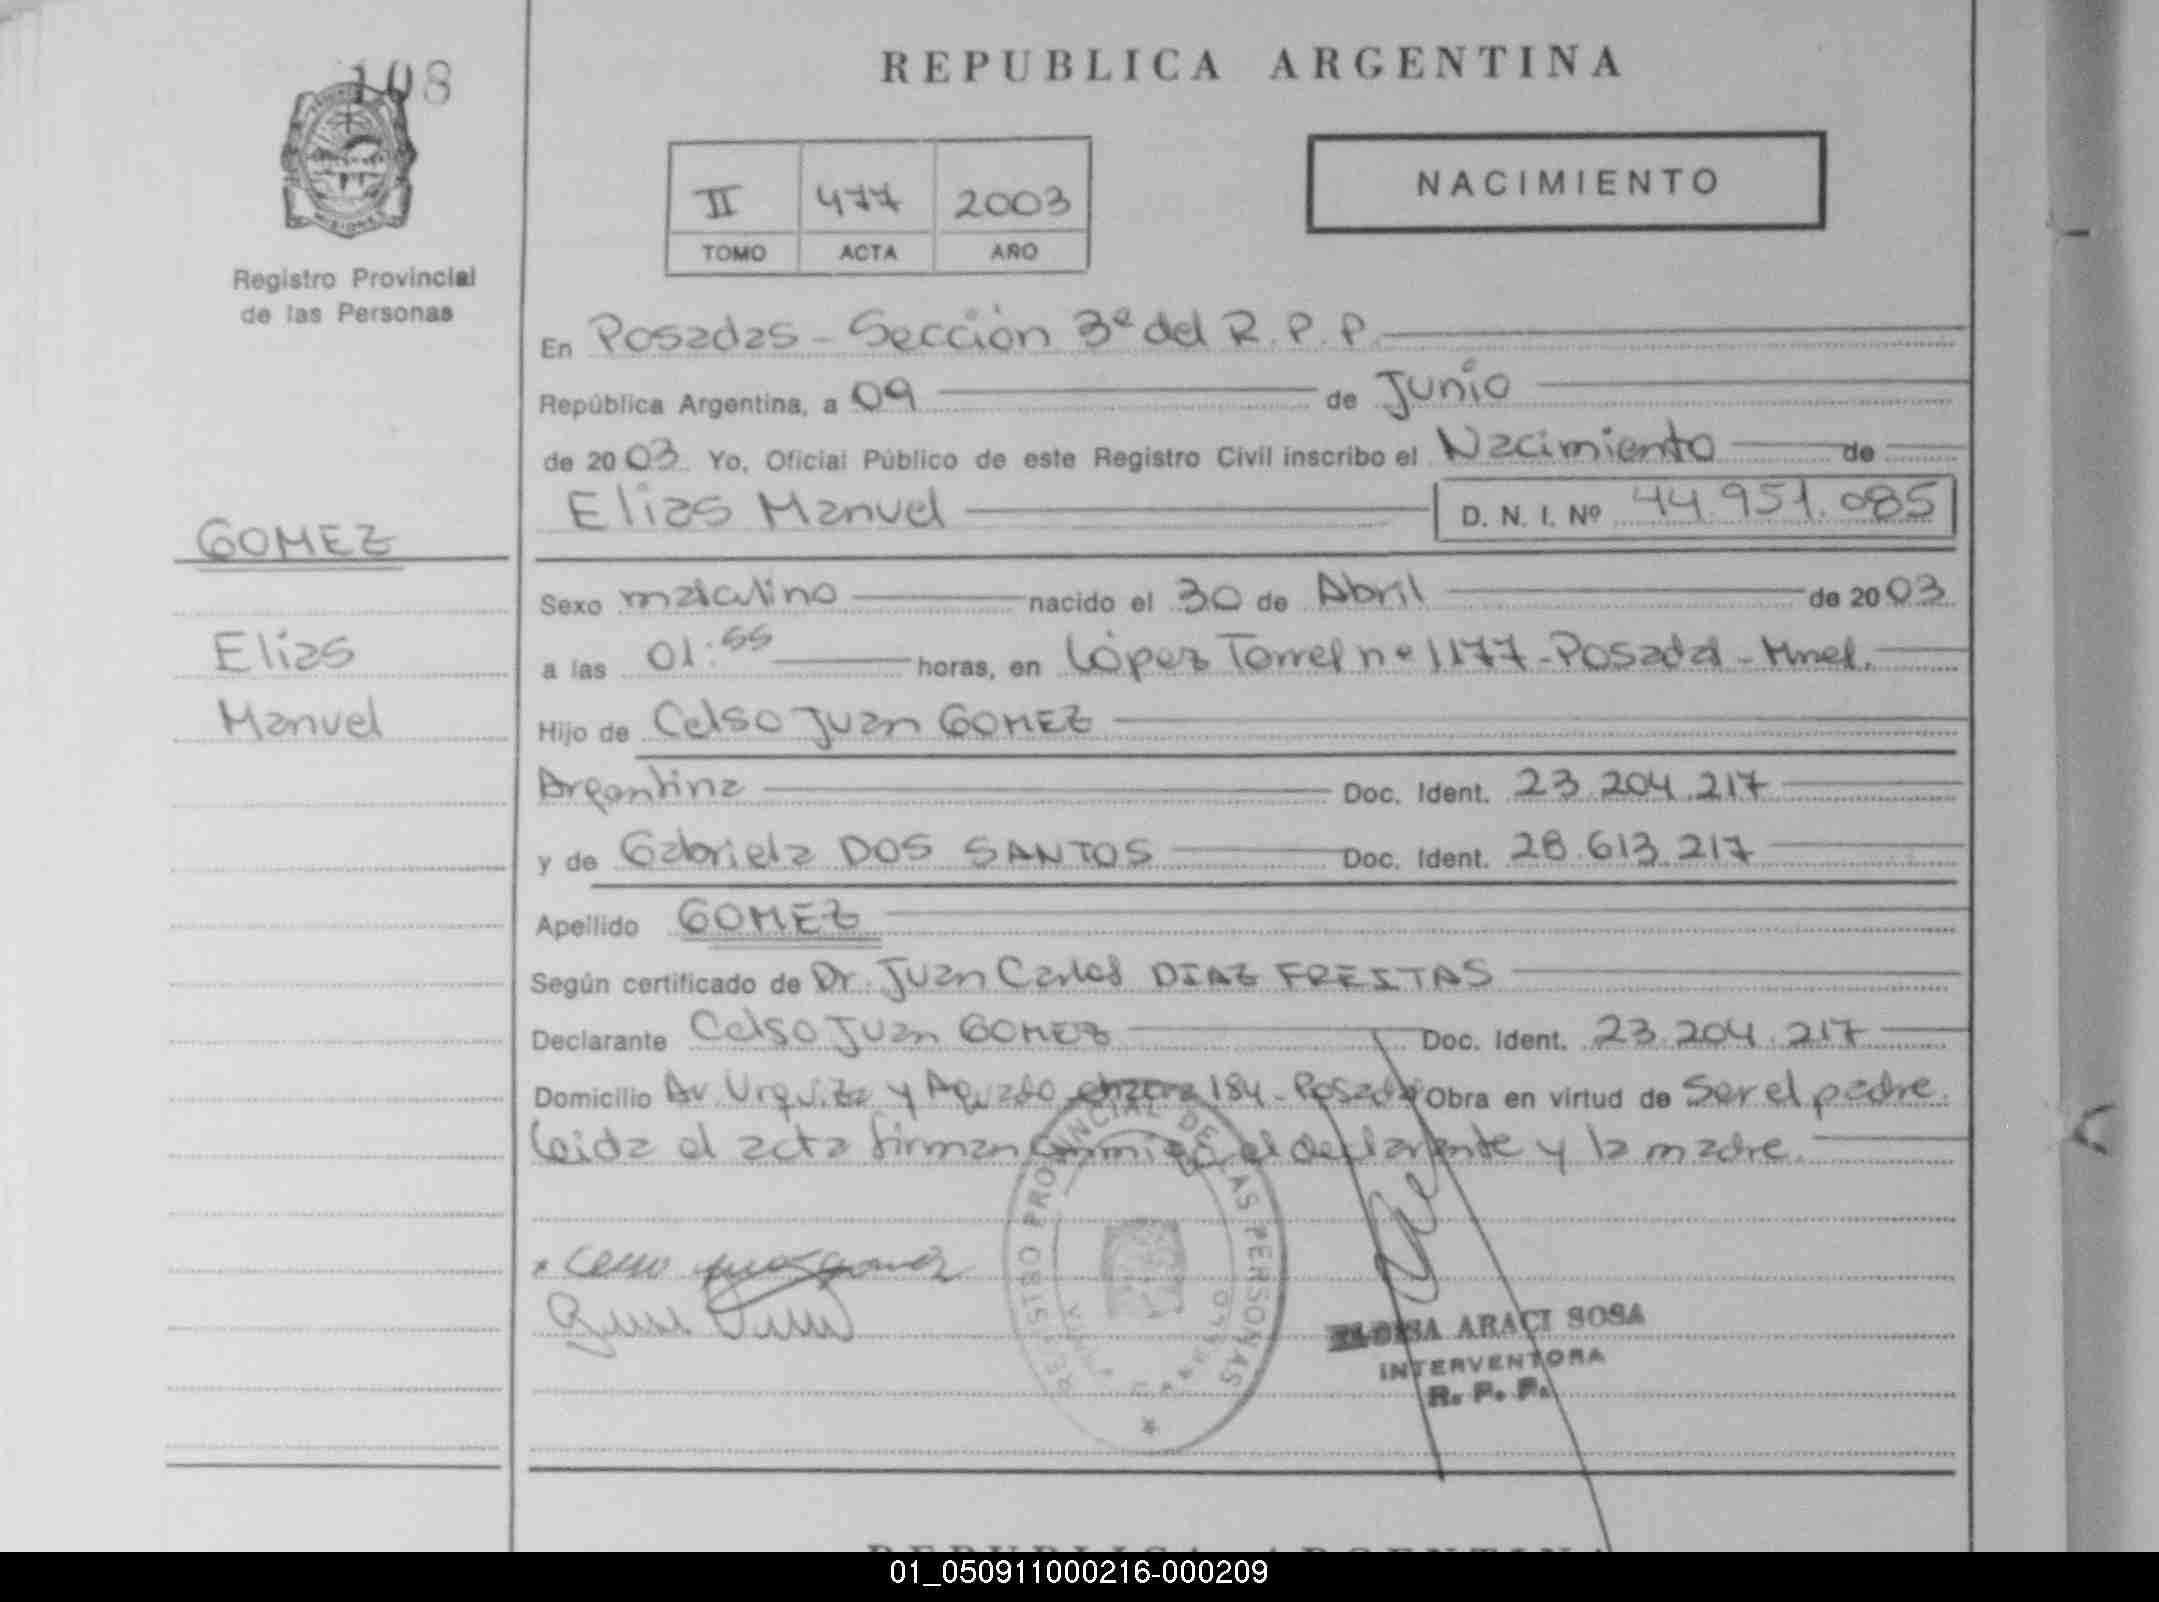 108
REPUBLICA ARGENTINA
NACIMIENTO
II 477 2003
TOMO ACTA AÑO
Registro Provincial
de las Personas
En Posadas - Sección 3ª del R.P.P.
República Argentina, a 09 de Junio
de 2003. Yo, Oficial Público de este Registro Civil inscribo el Nacimiento de
Elias Manuel D. N. I. Nº 44.951.085
GOMEZ
Elias
Manuel
Sexo masculino nacido el 30 de Abril de 2003
a las 01:55 horas, en López Torres nº 1177 - Posadas - Mnes.
Hijo de Celso Juan GOMEZ
Argentina Doc. Ident. 23.204.217
y de Gabriela DOS SANTOS Doc. Ident. 28.613.217
Apellido GOMEZ
Según certificado de Dr. Juan Carlos DIAZ FREITAS
Declarante Celso Juan GOMEZ Doc. Ident. 23.204.217
Domicilio Av. Urquiza y Aguado 184 - Posadas Obra en virtud de Ser el padre.
leida el acta firman conmigo el declarante y la madre.
REGISTRO PROVINCIAL DE LAS PERSONAS
ARACI SOSA
INTERVENTORA
R. P. P.
REPUBLICA ARGENTINA
01_050911000216-000209